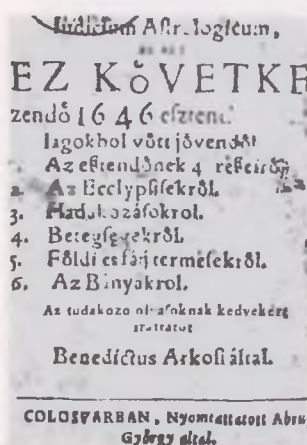 Iudicium Astrologicum,
AZ AZ
EZ KöVETKE
zendő 1646 esztend
lagokbol vött jövendöl
Az esztendőnek 4 részeiről
2. Az Ecclypsisekről.
3. Hadakozásokrol.
4. Betegsegekről.
5. Földi es fáji termésekről.
6. Az Bányakrol.
Az tudakozo olvasoknak kedvekért
irattatot
Benedictus Arkosi által.
COLOSVARBAN, Nyomtattatott Abru
György által.